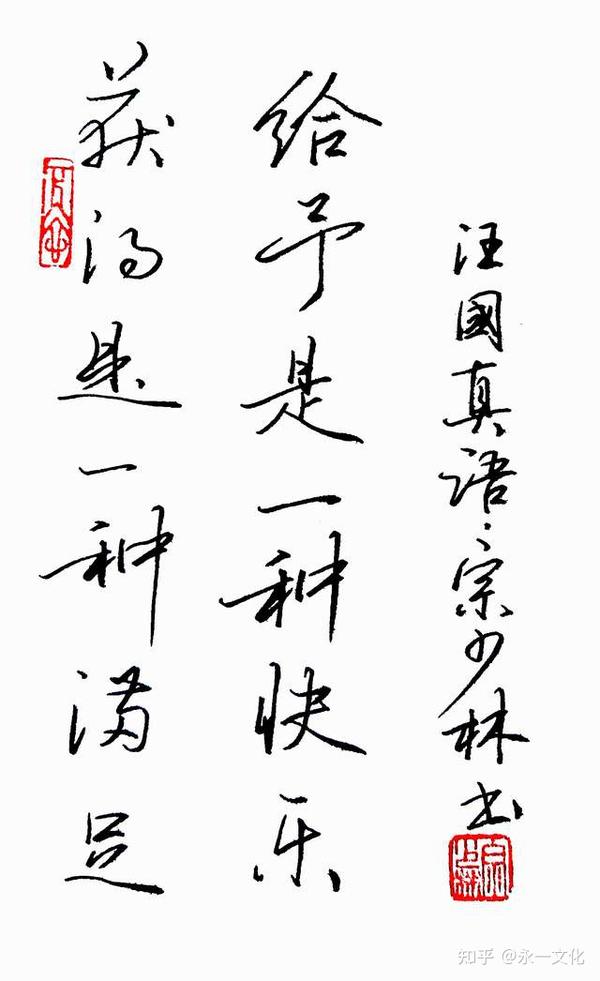 获得是一种满足
给予是一种快乐
汪國真语：宗少林书
知乎 @永一文化